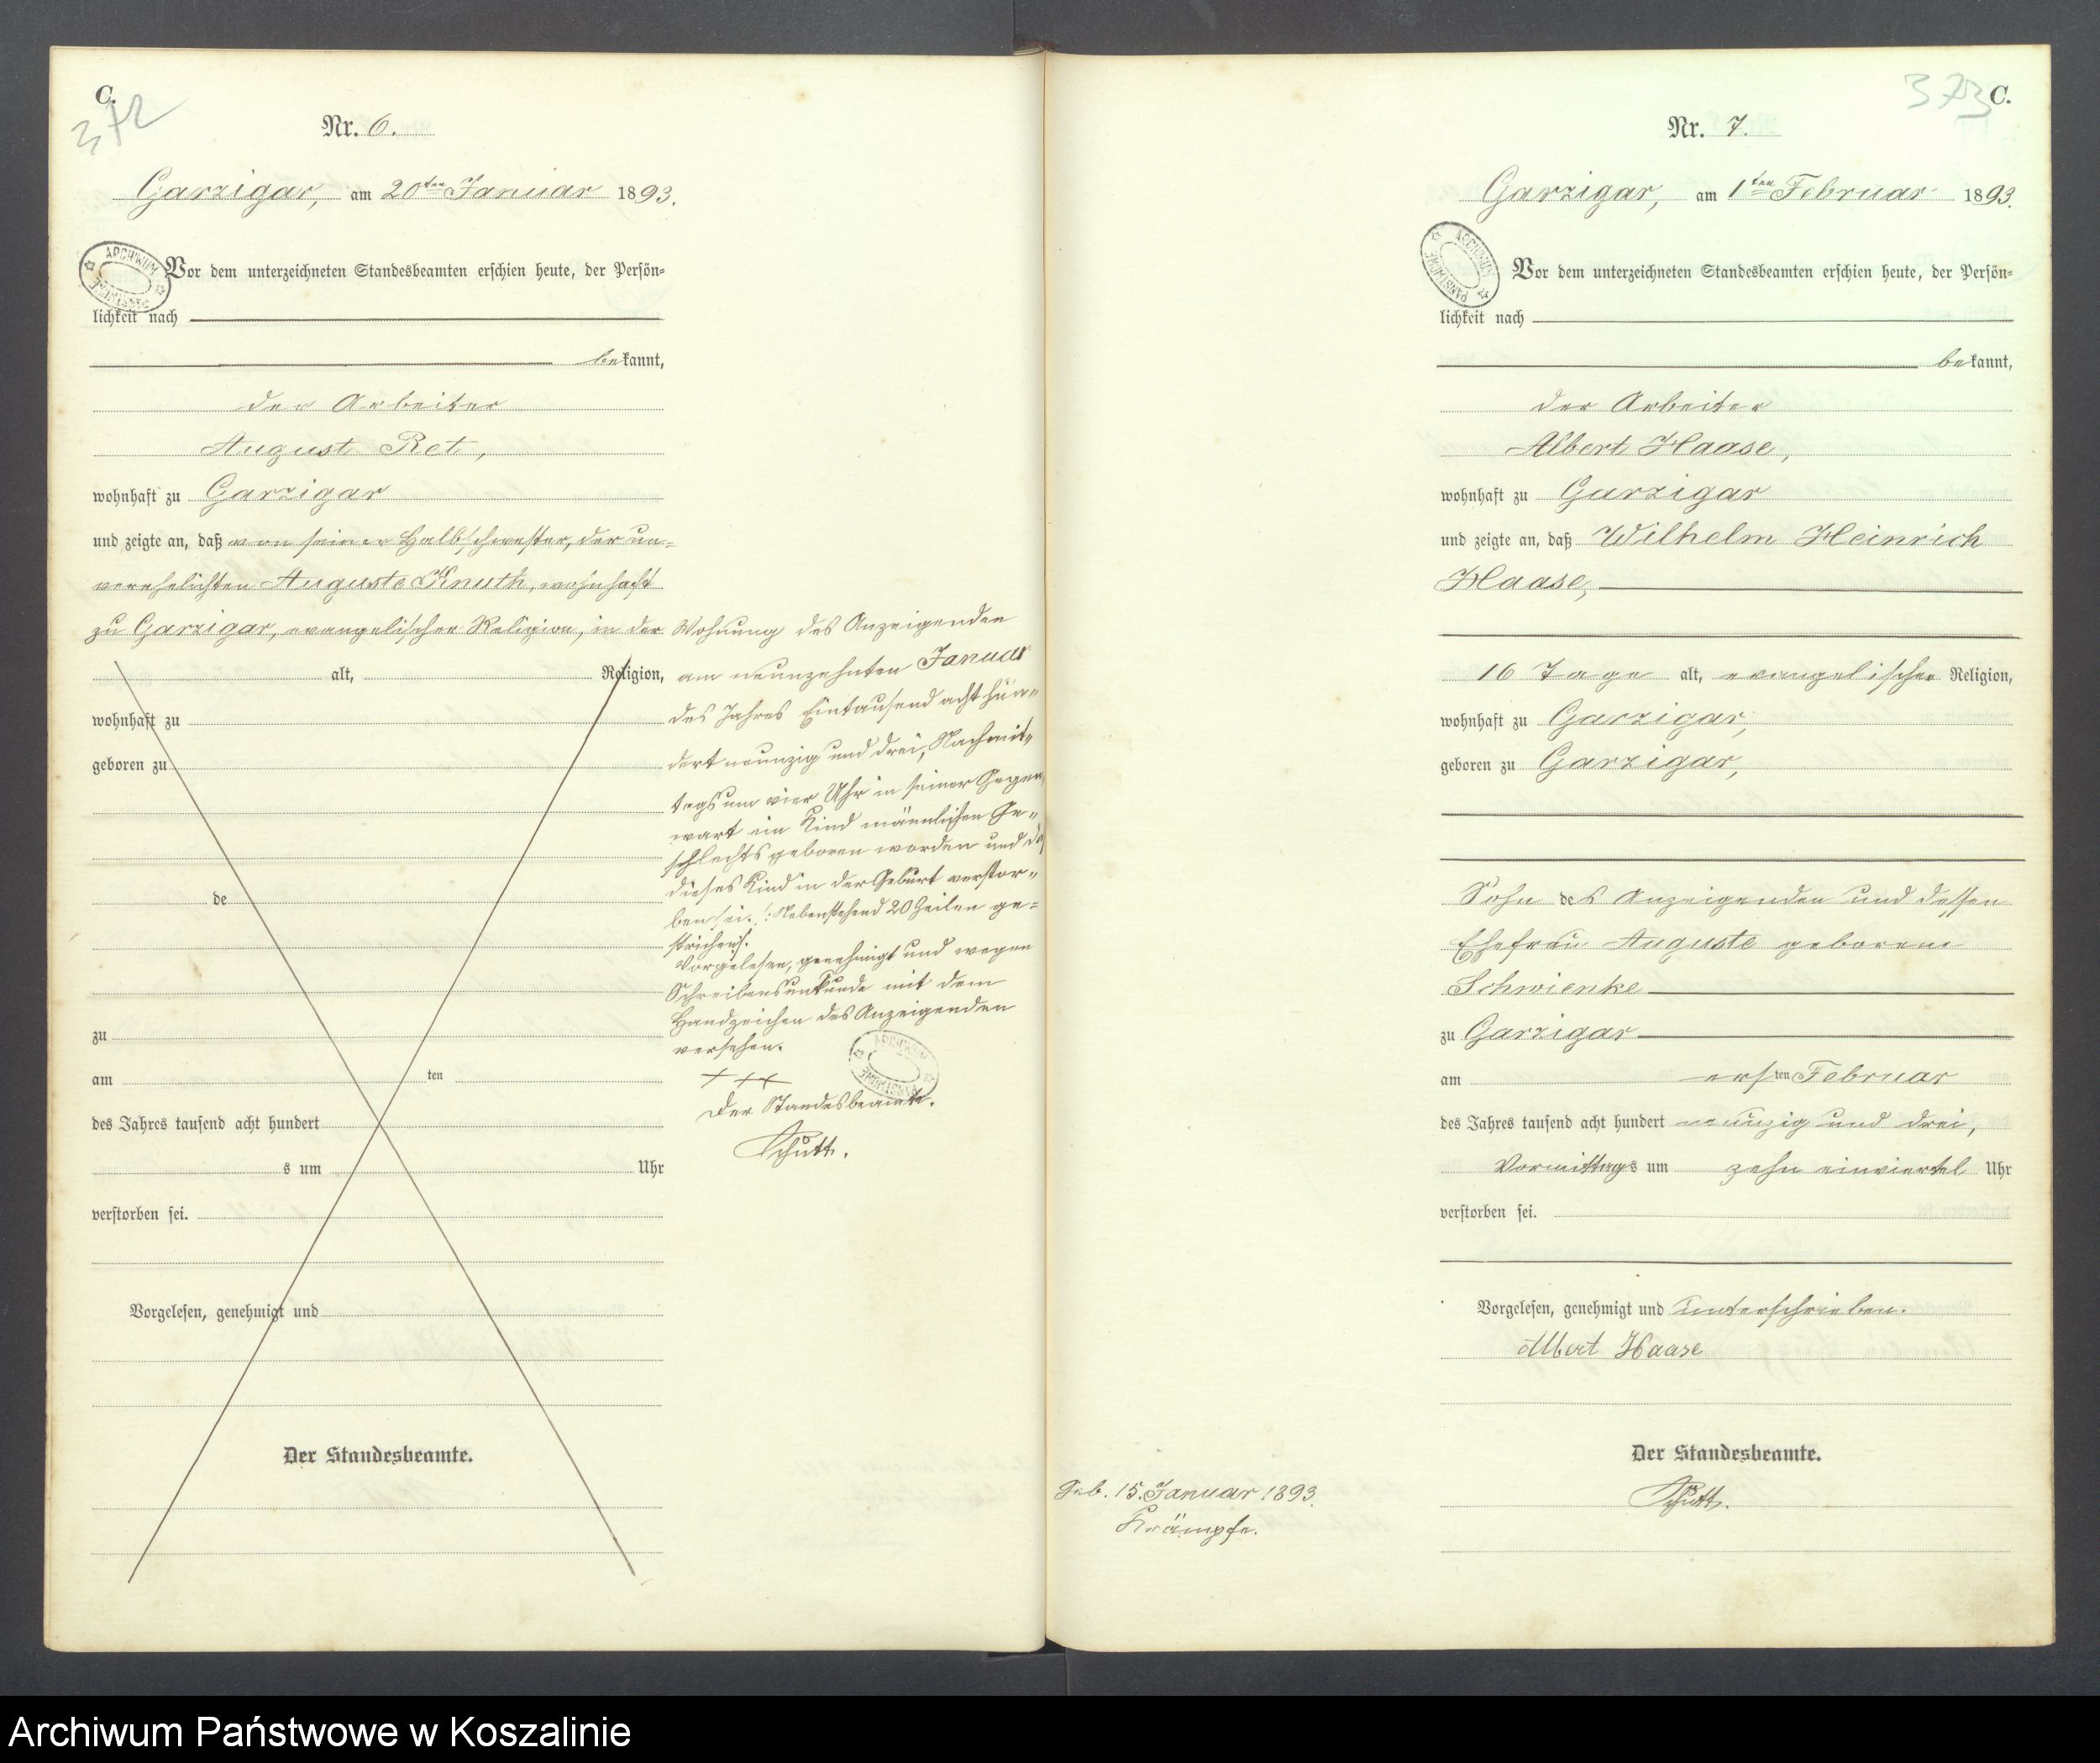 C.
372
Nr. 6.
Garzigar, am 20ten Januar 1893.
Vor dem unterzeichneten Standesbeamten erschien heute, der Persön=
lichkeit nach
bekannt,
der Arbeiter
August Ret,
wohnhaft zu Garzigar
und zeigte an, daß von seiner Halbschwester, der un=
verehelichten Auguste Knuth, wohnhaft
zu Garzigar, evangelischer Religion, in der Wohnung des Anzeigenden
alt, Religion,
wohnhaft zu
geboren zu
de
zu
am ten
des Jahres tausend acht hundert
s um Uhr
verstorben sei.
Vorgelesen, genehmigt und
Der Standesbeamte.
am neunzehnten Januar
des Jahres Eintausend acht hun=
dert neunzig und drei, Nachmit=
tags um vier Uhr in seiner Gegen
wart ein Kind männlichen Ge=
schlechts geboren worden und daß
dieses Kind in der Geburt verstor=
ben sei. /: Nebenstehend 20 Zeilen ge=
strichen :/.
Vorgelesen, genehmigt und wegen
Schreibensunkunde mit dem
Handzeichen des Anzeigenden
versehen.
+++
Der Standesbeamte.
Schütt.
ARCHIWUM PAŃSTWOWE
ARCHIWUM PAŃSTWOWE
373 C.
Nr. 7.
Garzigar, am 1ten Februar 1893.
ARCHIWUM PAŃSTWOWE
Vor dem unterzeichneten Standesbeamten erschien heute, der Persön=
lichkeit nach
bekannt,
der Arbeiter
Albert Haase,
wohnhaft zu Garzigar
und zeigte an, daß Wilhelm Heinrich
Haase,
16 Tage alt, evangelischer Religion,
wohnhaft zu Garzigar,
geboren zu Garzigar,
Sohn des Anzeigenden und dessen
Ehefrau Auguste geborene
Schwienke
zu Garzigar
am ersten Februar
des Jahres tausend acht hundert neunzig und drei,
Vormittags um zehn einviertel Uhr
verstorben sei.
Vorgelesen, genehmigt und unterschrieben.
Albert Haase
Der Standesbeamte.
Schütt.
Geb. 15. Januar 1893.
Krämpfe.
Archiwum Państwowe w Koszalinie